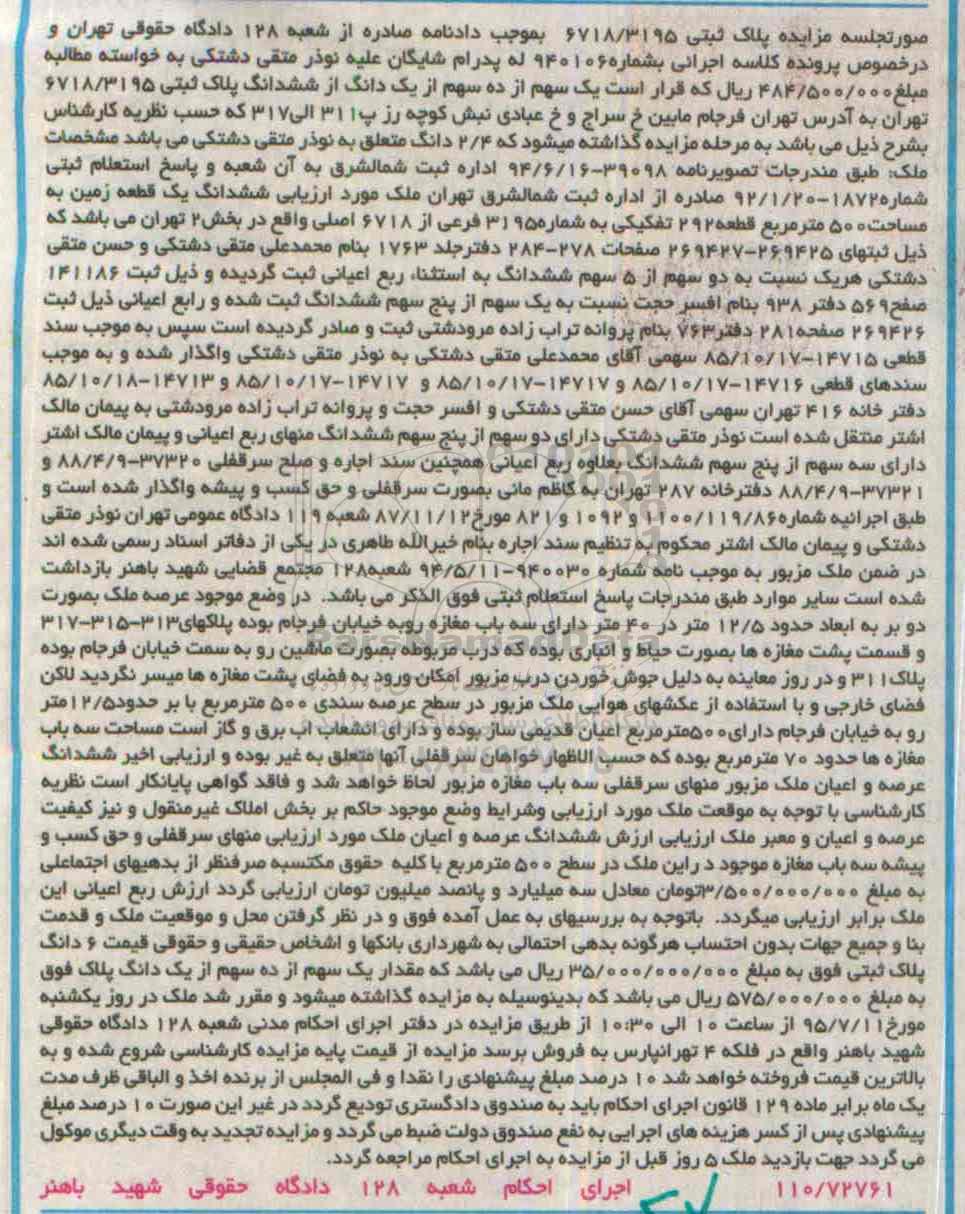 صورتجلسه مزایده پلاک ثبتی ۶۷۱۸/۳۱۹۵ بموجب دادنامه صادره از شعبه ۱۲۸ دادگاه حقوقی تهران و
درخصوص پرونده کلاسه اجرائی بشماره۹۴۰۱۰۶ له پدرام شایگان علیه نوذر متقی دشتکی به خواسته مطالبه
مبلغ۴۸۴/۵۰۰/۰۰۰ ریال که قرار است یک سهم از ده سهم از یک دانگ از ششدانگ پلاک ثبتی ۶۷۱۸/۳۱۹۵
تهران به آدرس تهران فرجام مابین خ سراج و خ عبادی نبش کوچه رز پ۳۱۱ الی۳۱۷ که حسب نظریه کارشناس
بشرح ذیل می باشد به مرحله مزایده گذاشته میشود که ۲/۴ دانگ متعلق به نوذر متقی دشتکی می باشد مشخصات
ملک: طبق مندرجات تصویرنامه ۳۹۰۹۸-۹۴/۶/۱۶ اداره ثبت شمالشرق به آن شعبه و پاسخ استعلام ثبتی
شماره۱۸۷۲-۹۲/۱/۲۰ صادره از اداره ثبت شمالشرق تهران ملک مورد ارزیابی ششدانگ یک قطعه زمین به
مساحت۵۰۰ مترمربع قطعه۲۹۲ تفکیکی به شماره۳۱۹۵ فرعی از ۶۷۱۸ اصلی واقع در بخش۲ تهران می باشد که
ذیل ثبتهای ۲۶۹۴۲۵-۲۶۹۴۲۷ صفحات ۲۷۸-۲۸۴ دفترجلد ۱۷۶۳ بنام محمدعلی متقی دشتکی و حسن متقی
دشتکی هریک نسبت به دو سهم از ۵ سهم ششدانگ به استثناء ربع اعیانی ثبت گردیده و ذیل ثبت ۱۴۱۱۸۶
صفح۵۶۹ دفتر ۹۳۸ بنام افسر حجت نسبت به یک سهم از پنج سهم ششدانگ ثبت شده و رابع اعیانی ذیل ثبت
۲۶۹۴۲۶ صفحه۲۸۱ دفتر۷۶۳ بنام پروانه تراب زاده مرودشتی ثبت و صادر گردیده است سپس به موجب سند
قطعی ۱۴۷۱۵-۸۵/۱۰/۱۷ سهمی آقای محمدعلی متقی دشتکی به نوذر متقی دشتکی واگذار شده و به موجب
سندهای قطعی ۱۴۷۱۶-۸۵/۱۰/۱۷ و ۱۴۷۱۷-۸۵/۱۰/۱۷ و ۱۴۷۱۷-۸۵/۱۰/۱۷ و ۱۴۷۱۳-۸۵/۱۰/۱۸
دفتر خانه ۴۱۶ تهران سهمی آقای حسن متقی دشتکی و افسر حجت و پروانه تراب زاده مرودشتی به پیمان مالک
اشتر منتقل شده است نوذر متقی دشتکی دارای دو سهم از پنج سهم ششدانگ منهای ربع اعیانی و پیمان مالک اشتر
دارای سه سهم از پنج سهم ششدانگ بعلاوه ربع اعیانی همچنین سند اجاره و صلح سرقفلی ۳۷۳۲۰-۸۸/۴/۹ و
۳۷۳۲۱-۸۸/۴/۹ دفترخانه ۲۸۷ تهران به کاظم مانی بصورت سرقفلی و حق کسب و پیشه واگذار شده است و
طبق اجرائیه شماره۱۱۰۰/۱۱۹/۸۶ و ۱۰۹۲ و ۸۲۱ مورخ۸۷/۱۱/۱۲ شعبه ۱۱۹ دادگاه عمومی تهران نوذر متقی
دشتکی و پیمان مالک اشتر محکوم به تنظیم سند اجاره بنام خیرالله طاهری در یکی از دفاتر اسناد رسمی شده اند
در ضمن ملک مزبور به موجب نامه شماره ۹۴۰۰۳۰-۹۴/۵/۱۱ شعبه۱۲۸ مجتمع قضایی شهید باهنر بازداشت
شده است سایر موارد طبق مندرجات پاسخ استعلام ثبتی فوق الذکر می باشد. در وضع موجود عرصه ملک بصورت
دو بر به ابعاد حدود ۱۲/۵ متر در ۴۰ متر دارای سه باب مغازه روبه خیابان فرجام بوده پلاکهای۳۱۳-۳۱۵-۳۱۷
و قسمت پشت مغازه ها بصورت حیاط و انباری بوده که درب مربوطه بصورت ماشین رو به سمت خیابان فرجام بوده
پلاک۳۱۱ و در روز معاینه به دلیل جوش خوردن درب مزبور امکان ورود به فضای پشت مغازه ها میسر نگردید لاکن
فضای خارجی و با استفاده از عکسهای هوایی ملک مزبور در سطح عرصه سندی ۵۰۰ مترمربع با بر حدود۱۲/۵متر
رو به خیابان فرجام دارای۵۰۰مترمربع اعیان قدیمی ساز بوده و دارای انشعاب آب برق و گاز است مساحت سه باب
مغازه ها حدود ۷۰ مترمربع بوده که حسب الاظهار خواهان سرقفلی آنها متعلق به غیر بوده و ارزیابی اخیر ششدانگ
عرصه و اعیان ملک مزبور منهای سرقفلی سه باب مغازه مزبور لحاظ خواهد شد و فاقد گواهی پایانکار است نظریه
کارشناسی با توجه به موقعت ملک مورد ارزیابی وشرایط وضع موجود حاکم بر بخش املاک غیرمنقول و نیز کیفیت
عرصه و اعیان و معبر ملک ارزیابی ارزش ششدانگ عرصه و اعیان ملک مورد ارزیابی منهای سرقفلی و حق کسب و
پیشه سه باب مغازه موجود د راین ملک در سطح ۵۰۰ مترمربع با کلیه حقوق مکتسبه صرفنظر از بدهیهای اجتماعلی
به مبلغ ۳/۵۰۰/۰۰۰/۰۰۰تومان معادل سه میلیارد و پانصد میلیون تومان ارزیابی گردد ارزش ربع اعیانی این
ملک برابر ارزیابی میگردد. باتوجه به بررسیهای به عمل آمده فوق و در نظر گرفتن محل و موقعیت ملک و قدمت
بنا و جمیع جهات بدون احتساب هرگونه بدهی احتمالی به شهرداری بانکها و اشخاص حقیقی و حقوقی قیمت ۶ دانگ
پلاک ثبتی فوق به مبلغ ۳۵/۰۰۰/۰۰۰/۰۰۰ ریال می باشد که مقدار یک سهم از ده سهم از یک دانگ پلاک فوق
به مبلغ ۵۷۵/۰۰۰/۰۰۰ ریال می باشد که بدینوسیله به مزایده گذاشته میشود و مقرر شد ملک در روز یکشنبه
مورخ۹۵/۷/۱۱ از ساعت ۱۰ الی ۱۰:۳۰ از طریق مزایده در دفتر اجرای احکام مدنی شعبه ۱۲۸ دادگاه حقوقی
شهید باهنر واقع در فلکه ۴ تهرانپارس به فروش برسد مزایده از قیمت پایه مزایده کارشناسی شروع شده و به
بالاترین قیمت فروخته خواهد شد ۱۰ درصد مبلغ پیشنهادی را نقدا و فی المجلس از برنده اخذ و الباقی ظرف مدت
یک ماه برابر ماده ۱۲۹ قانون اجرای احکام باید به صندوق دادگستری تودیع گردد در غیر این صورت ۱۰ درصد مبلغ
پیشنهادی پس از کسر هزینه های اجرایی به نفع صندوق دولت ضبط می گردد و مزایده تجدید به وقت دیگری موکول
می گردد جهت بازدید ملک ۵ روز قبل از مزایده به اجرای احکام مراجعه گردد.
۱۱۰/۷۲۷۶۱ اجرای احکام شعبه ۱۲۸ دادگاه حقوقی شهید باهنر
ParsNamadData